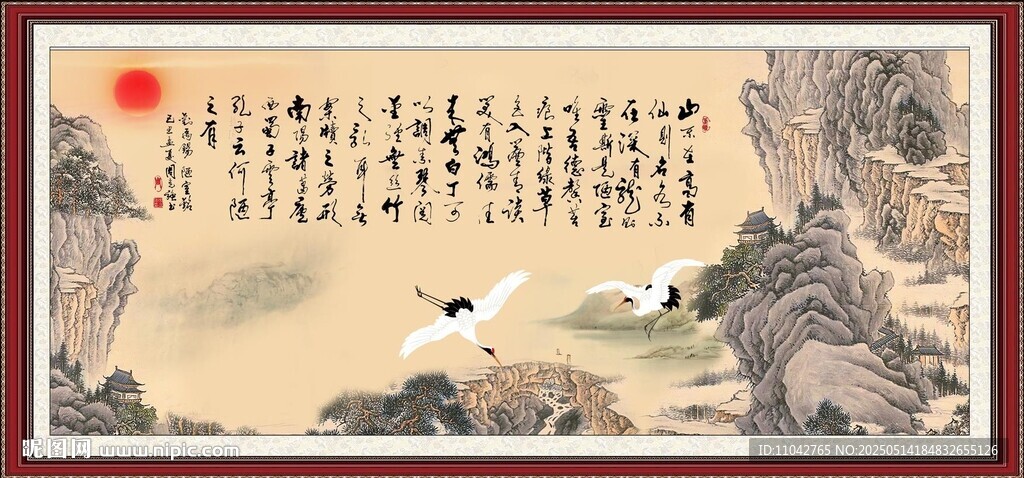 山不在高有
仙則名水不
在深有龍則
靈斯是陋室
唯吾德馨苔
痕上階綠草
色入簾青談
笑有鴻儒往
来無白丁可
以調素琴閱
金經無絲竹
之亂耳無
案牘之勞形
南陽諸葛廬
西蜀子雲亭
孔子云何陋
之有
劉禹錫 陋室銘
己丑孟夏周書
昵图网 www.nipic.com
ID:11042765 NO:20250514184832655126